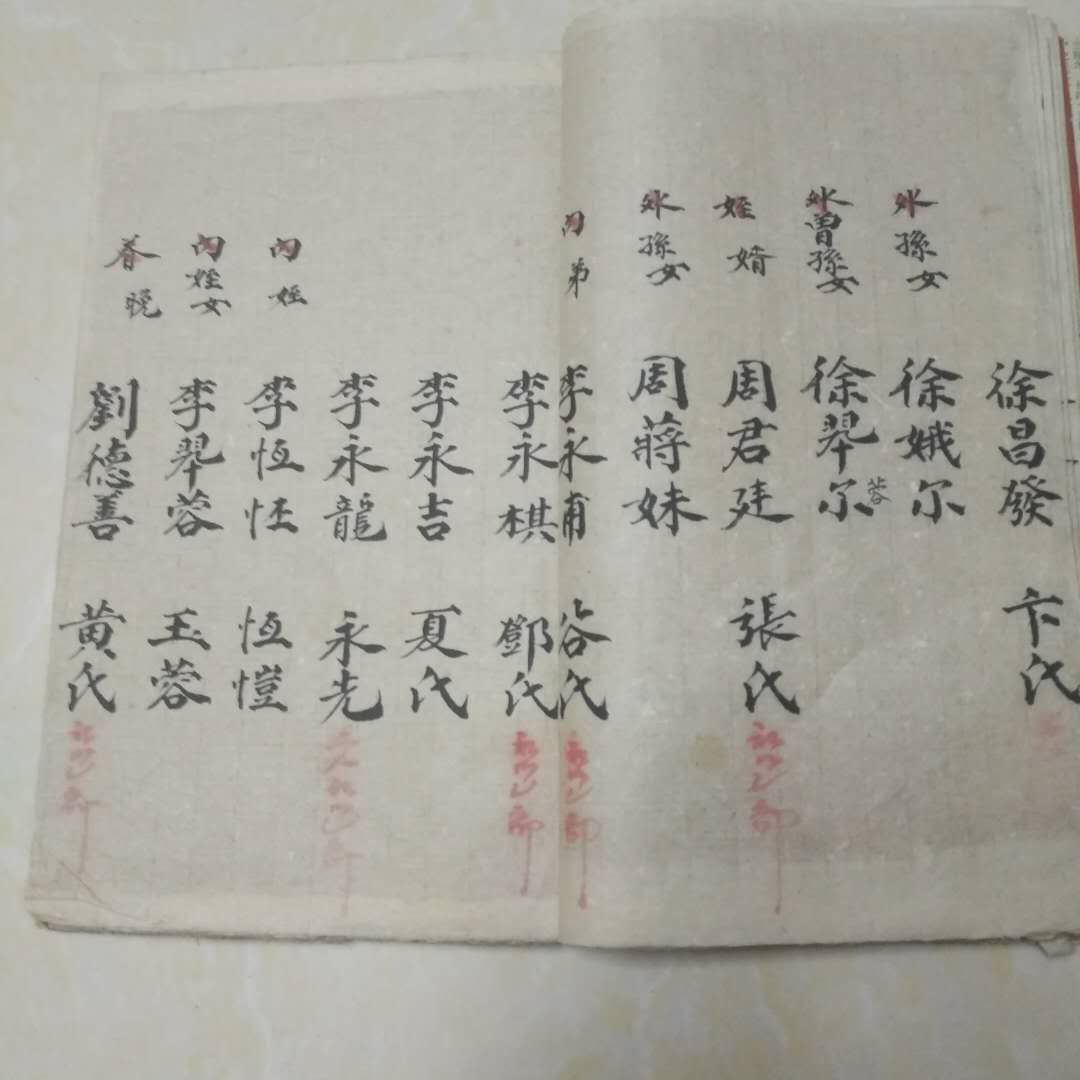 徐昌發 卞氏
外孫女 徐娥尔
外曾孫女 徐翠尔 蓉
姪婿 周君廷 張氏
外孫女 周蔣妹
内弟 李永甫 谷氏
李永棋 鄧氏
李永吉 夏氏
李永龍 永先
内姪 李恆恇 恆愷
内姪女 李翠蓉 玉蓉
眷晚 劉德善 黄氏